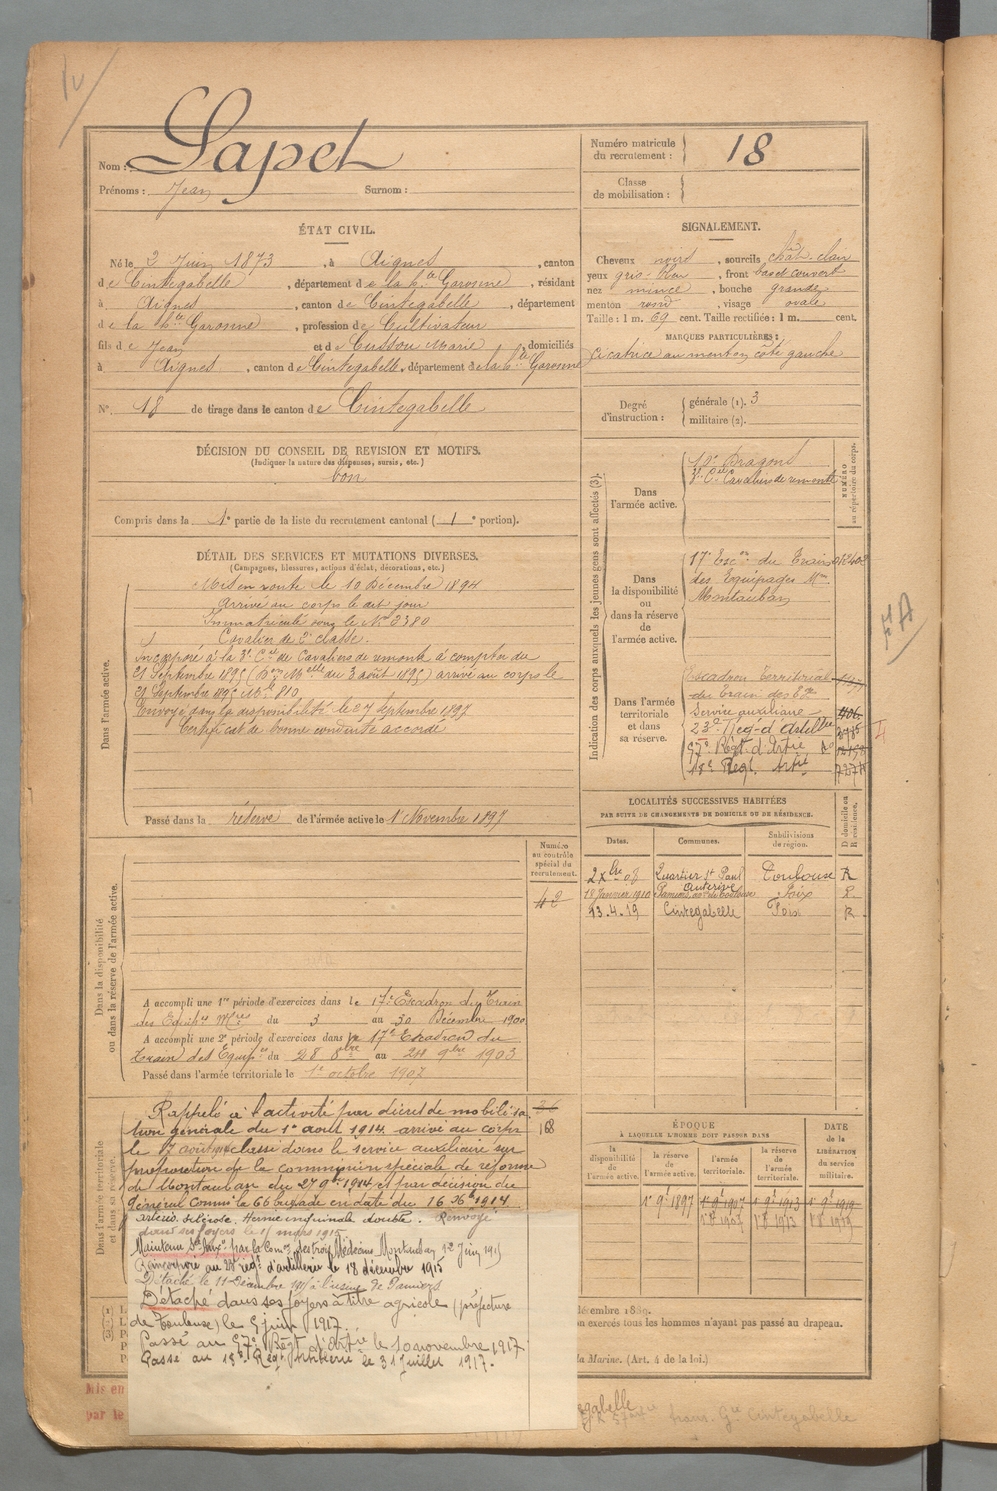 Nom : Lapet
Prénoms : Jean Surnom :
Numéro matricule
du recrutement : 18
Classe
de mobilisation :
ÉTAT CIVIL.
Né le 2 Juin 1873, à Aignes, canton
de Cintegabelle, département de la Hte Garonne, résidant
à Aignes, canton de Cintegabelle, département
de la Hte Garonne, profession de Cultivateur
fils de Jean et de Cussou Marie, domiciliés
à Aignes, canton de Cintegabelle, département de la Hte Garonne
N° 18 de tirage dans le canton de Cintegabelle
SIGNALEMENT.
Cheveux noirs, sourcils chât. clair
yeux gris-bleu, front bas et couvert
nez mince, bouche grande
menton rond, visage ovale
Taille : 1 m. 69 cent. Taille rectifiée : 1 m. cent.
MARQUES PARTICULIÈRES :
Cicatrice au menton côté gauche
Degré
d'instruction :
générale (1). 3
militaire (2).
DÉCISION DU CONSEIL DE REVISION ET MOTIFS.
(Indiquer la nature des dispenses, sursis, etc.)
bon
Compris dans la 1e partie de la liste du recrutement cantonal ( 1e portion).
DÉTAIL DES SERVICES ET MUTATIONS DIVERSES.
(Campagnes, blessures, actions d'éclat, décorations, etc.)
Dans l'armée active.
Mis en route le 10 Décembre 1894
Arrivé au corps le dit jour
Immatriculé sous le N° 2380
Cavalier de 2e classe.
Incorporé à la 3e Cie de Cavaliers de remonte à compter du
21 Septembre 1895 ( du 3 août 1895) arrivé au corps le
21 Septembre 1895 Mle 810
Envoyé dans la disponibilité le 27 Septembre 1897
Certificat de bonne conduite accordé
Passé dans la réserve de l'armée active le 1er Novembre 1897
Indication des corps auxquels les jeunes gens sont affectés (3).
NUMÉRO
au répertoire du corps.
Dans
l'armée active.
10e Dragons
3e Cie Cavaliers de remonte
Dans
la disponibilité
ou
dans la réserve
de
l'armée active.
17e Escon du Train
des Equipages Mres
Montauban
Dans l'armée
territoriale
et dans
sa réserve.
Escadron Territorial
du Train des
Service auxiliaire 406
23e Régt d'Artillie
57e Régt d'Artie
18e Régt Artie
LOCALITÉS SUCCESSIVES HABITÉES
PAR SUITE DE CHANGEMENTS DE DOMICILE OU DE RÉSIDENCE.
Dates. Communes. Subdivisions de région. D domicile ou R résidence.
2 Xbre 08 Quartier St Paul Toulouse R
18 Janvier 1910 Pamiers Foix R
13.4.19 Cintegabelle Foix R
Dans la disponibilité
ou dans la réserve de l'armée active.
Numéro
au contrôle
spécial du
recrutement.
42
A accompli une 1re période d'exercices dans le 17e Escadron du Train
des Equip. Mres du 3 au 30 Décembre 1900
A accompli une 2e période d'exercices dans le 17e Escadron du
Train des Equip. du 28 8bre au 24 9bre 1903
Passé dans l'armée territoriale le 1er octobre 1907
Dans l'armée territoriale
et dans sa réserve.
168
Rappelé à l'activité par décret de mobilisa
tion générale du 1er août 1914 arrivé au corps
le 17 août 1914 classé dans le service auxiliaire sur
proposition de la commission spéciale de réforme
de Montauban du 27 1914 et par décision du
Général Commt la 66 brigade en date du 16 Xbre 1914
artério-sclérose. Hernie inguinale double. Renvoyé
dans ses foyers le 17 mars 1915
Maintenu Sce Auxre par la Comon des trois Médecins Montauban 12 Juin 1915
Incorporé au 23e régt d'artillerie le 18 décembre 1915
Détaché le 11 Décembre à l'usine de Pamiers
Détaché dans ses foyers à titre agricole (préfecture
de Toulouse) le 5 juin 1917.
Passé au 57e Régt d'Artie le 10 novembre 1917.
Passé au 18e Régt Artillerie le 31 Juillet 1917.
ÉPOQUE
À LAQUELLE L'HOMME DOIT PASSER DANS
DATE
de la
LIBÉRATION
du service
militaire.
la
disponibilité
de
l'armée active.
la réserve
de
l'armée active.
l'armée
territoriale.
la réserve
de
l'armée
territoriale.
1er 9e 1897 1er 9e 1907 1er 9e 1913 1er 9e 1919
décembre 1889.
on exercés tous les hommes n'ayant pas passé au drapeau.
la Marine. (Art. 4 de la loi.)
Mis en
par le
gabelle
trans. Gie Cintegabelle